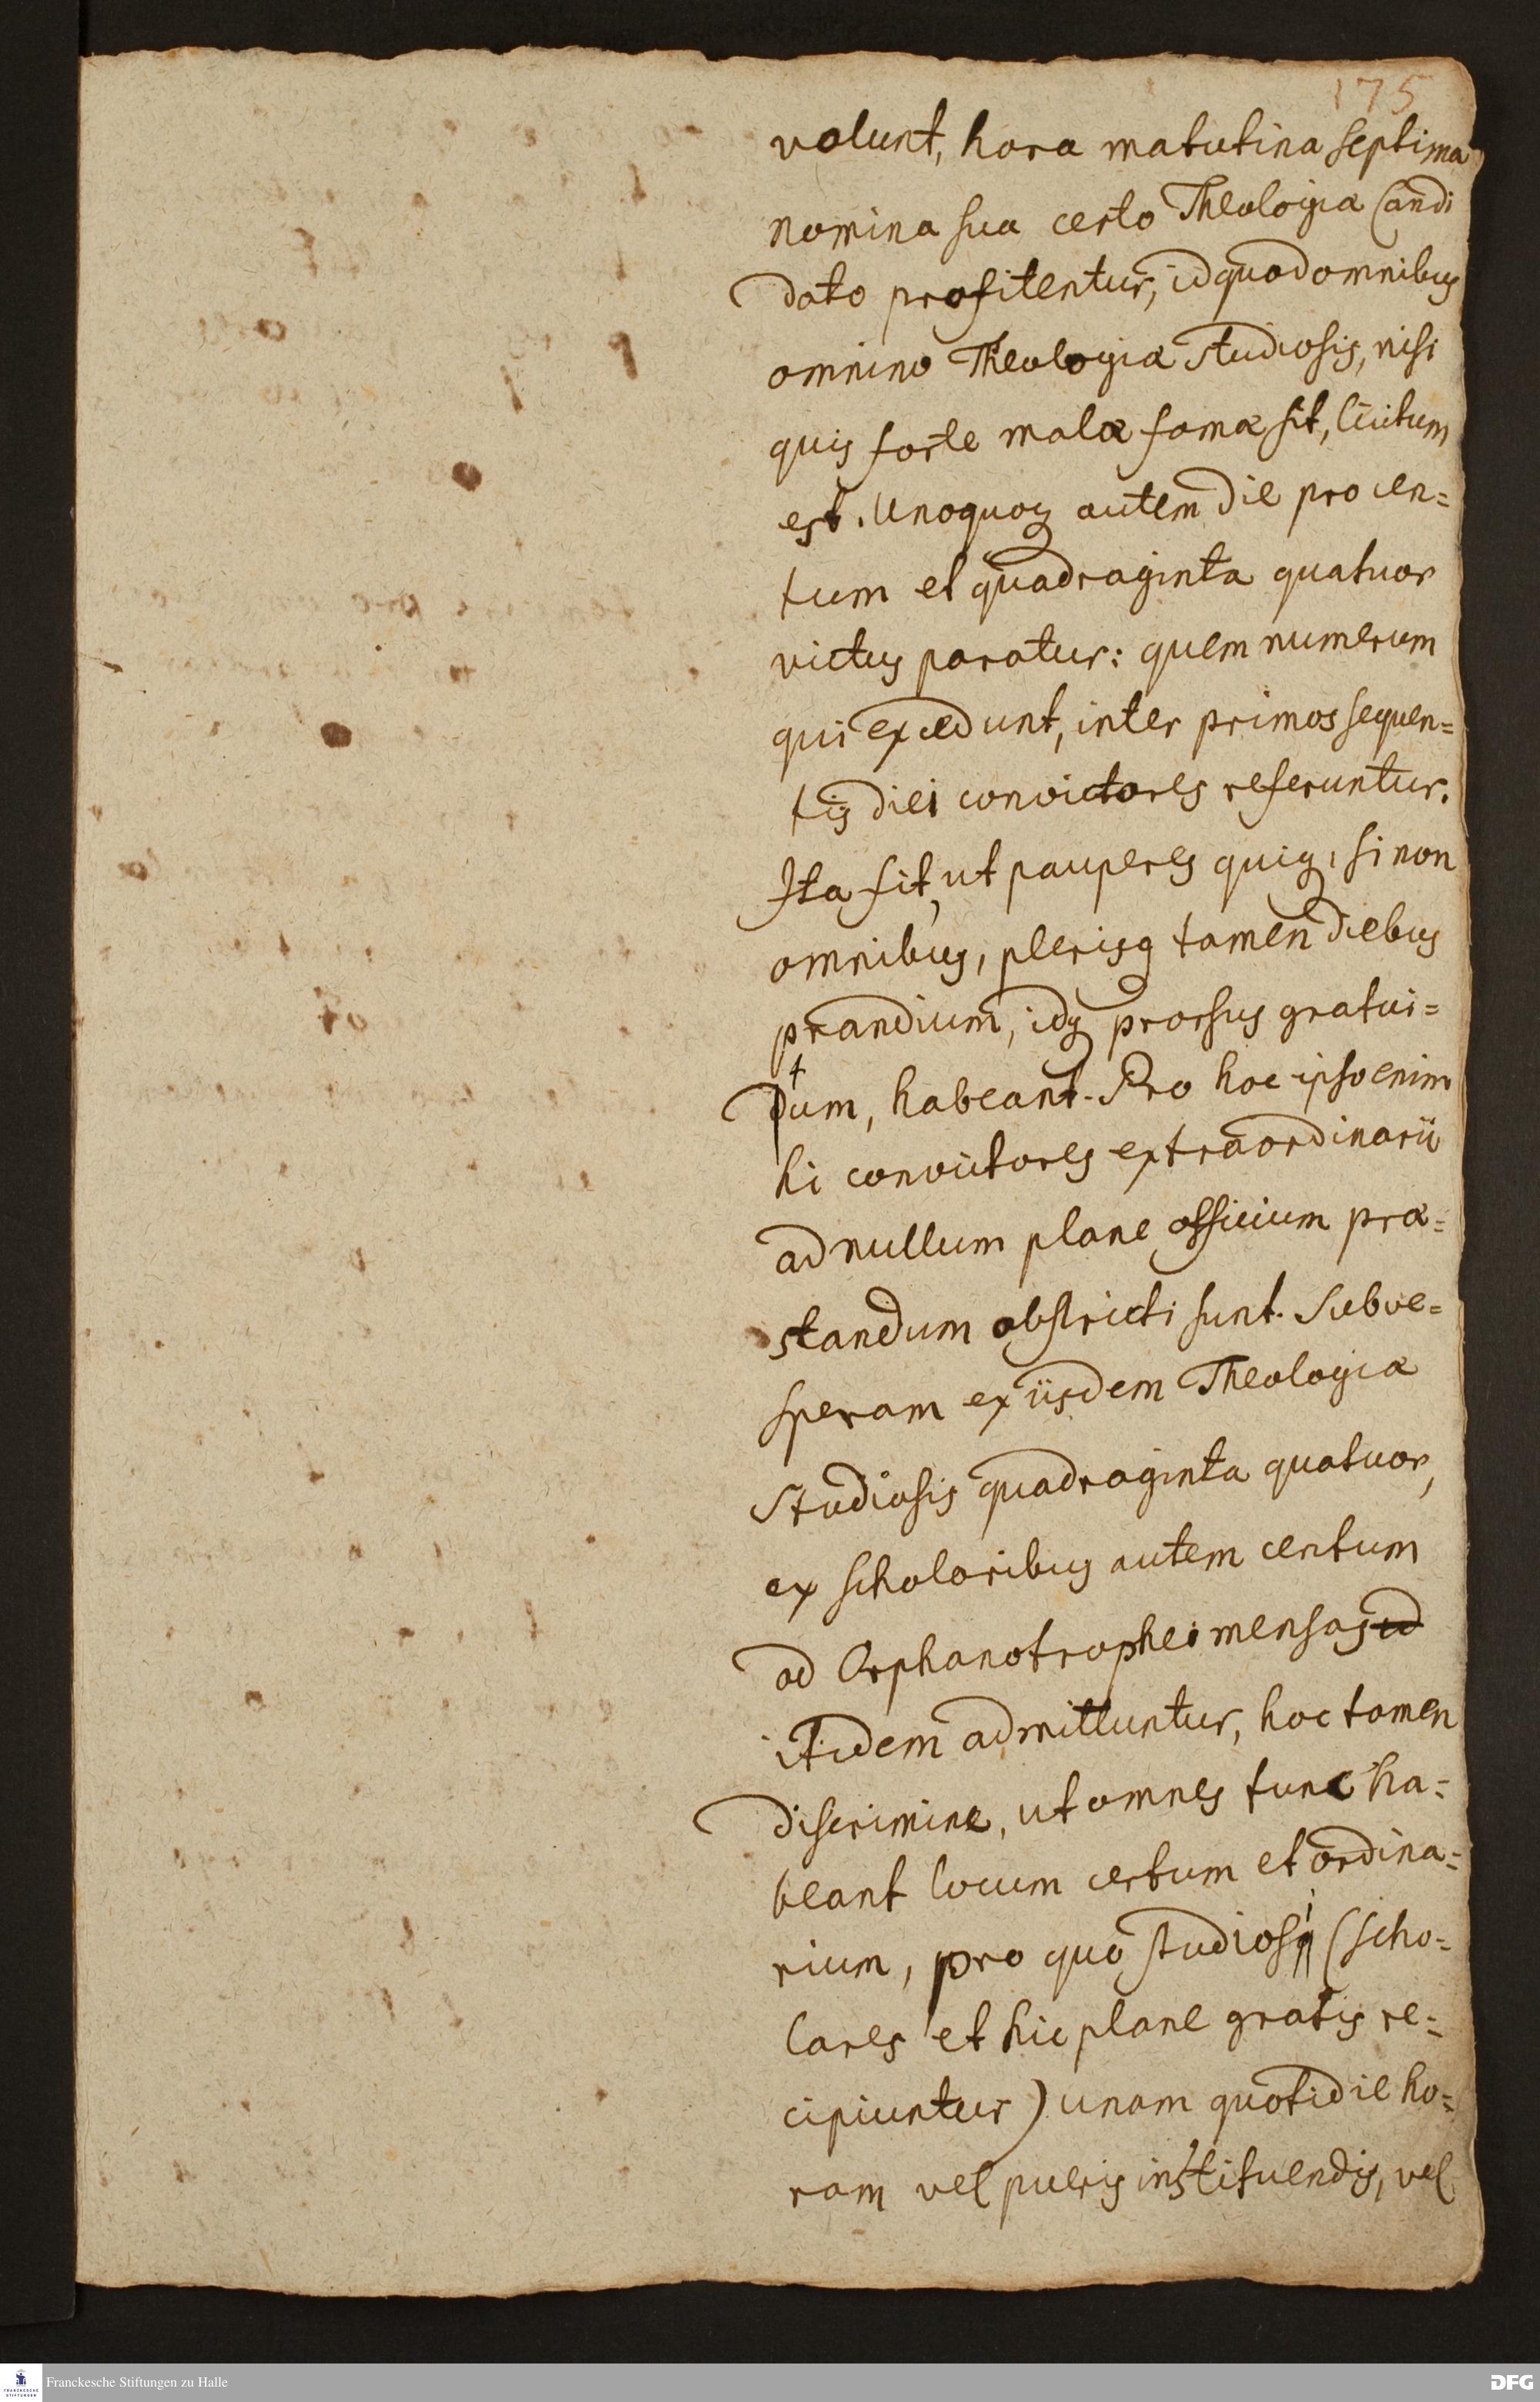 175
volunt, hora matutina septima
nomina sua certo Theologiæ Candi
dato profitentur, id quod omnibus
omnino Theologiæ studiosis, nisi
quis forte malæ famæ sit, licitum
est. Unoquoq autem die pro cen=
tum et quadraginta quatuor
victus paratur: quem numerum
qui excedunt, inter primos sequen=
tis diei convictores referuntur.
Ita fit, ut pauperes quiq, si non
omnibus, plerisq tamen diebus
prandium, idq prorsus gratui=
tum, habeant. Pro hoc ipso enim
hi convictores extraordinarii
ad nullum plane officium præ=
standum obstricti sunt. Subve=
speram ex iisdem Theologiæ
Studiosis quadraginta quatuor,
ex scholaribus autem centum
ad Orphanotrophei mensas id
itidem admittuntur, hoc tamen
discrimine, ut omnes tunc ha=
beant locum certum et ordina=
rium, pro quo studiosi (scho=
lares et hic plane gratis re=
cipiuntur) unam quotidie ho=
ram vel pueris instituendis, vel
Franckesche Stiftungen zu Halle
FRANCKESCHE
STIFTUNGEN
DFG